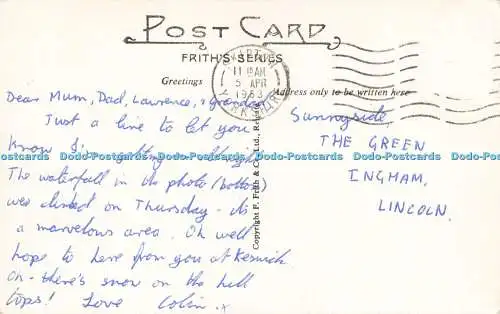 POST CARD
FRITH'S SERIES
Greetings
Address only to be written here
11 AM
5 APR
1963
Dear Mum, Dad, Lawrence, & Grandad
Just a line to let you
know I'm getting
The waterfall in the photo (bottom)
was climbed on Thursday - its
a marvelous area. Oh well
hope to here from you at Keswick
on - there's snow on the hill
tops! Love Colin. x
Sunnyside,
THE GREEN
INGHAM,
LINCOLN.
Copyright F. Frith & Co., Ltd., Reigate
Dodo-Postcards Dodo-Postcards Dodo-Postcards Dodo-Postcards Dodo-Postcards